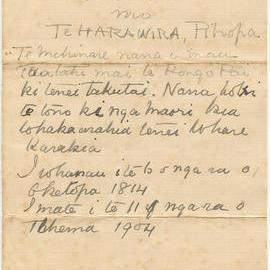 mo
Te HARAWIRA, Pihopa
"Te Mihinare nana i mau
tuatahi mai te Rongo Pai
ki tenei takutai. Nana hoki
te tono ki nga Maori kia
whakaarahia tenei Whare
Karakia
I whanau i te 6 o nga ra o
Oketopa 1814
I mate i te 11 o nga ra o
Tihema 1904